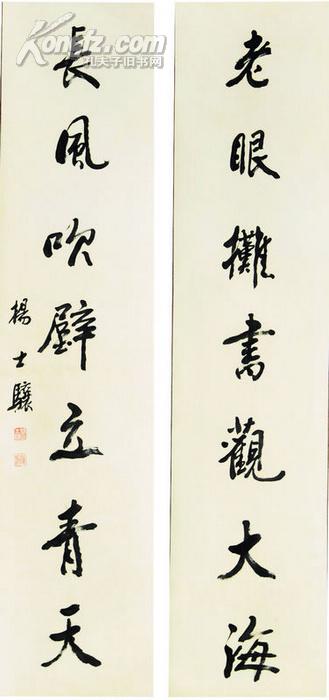 老眼攤書觀大海
長風吹壁立青天
楊士驤
Kongfz.com
孔夫子旧书网